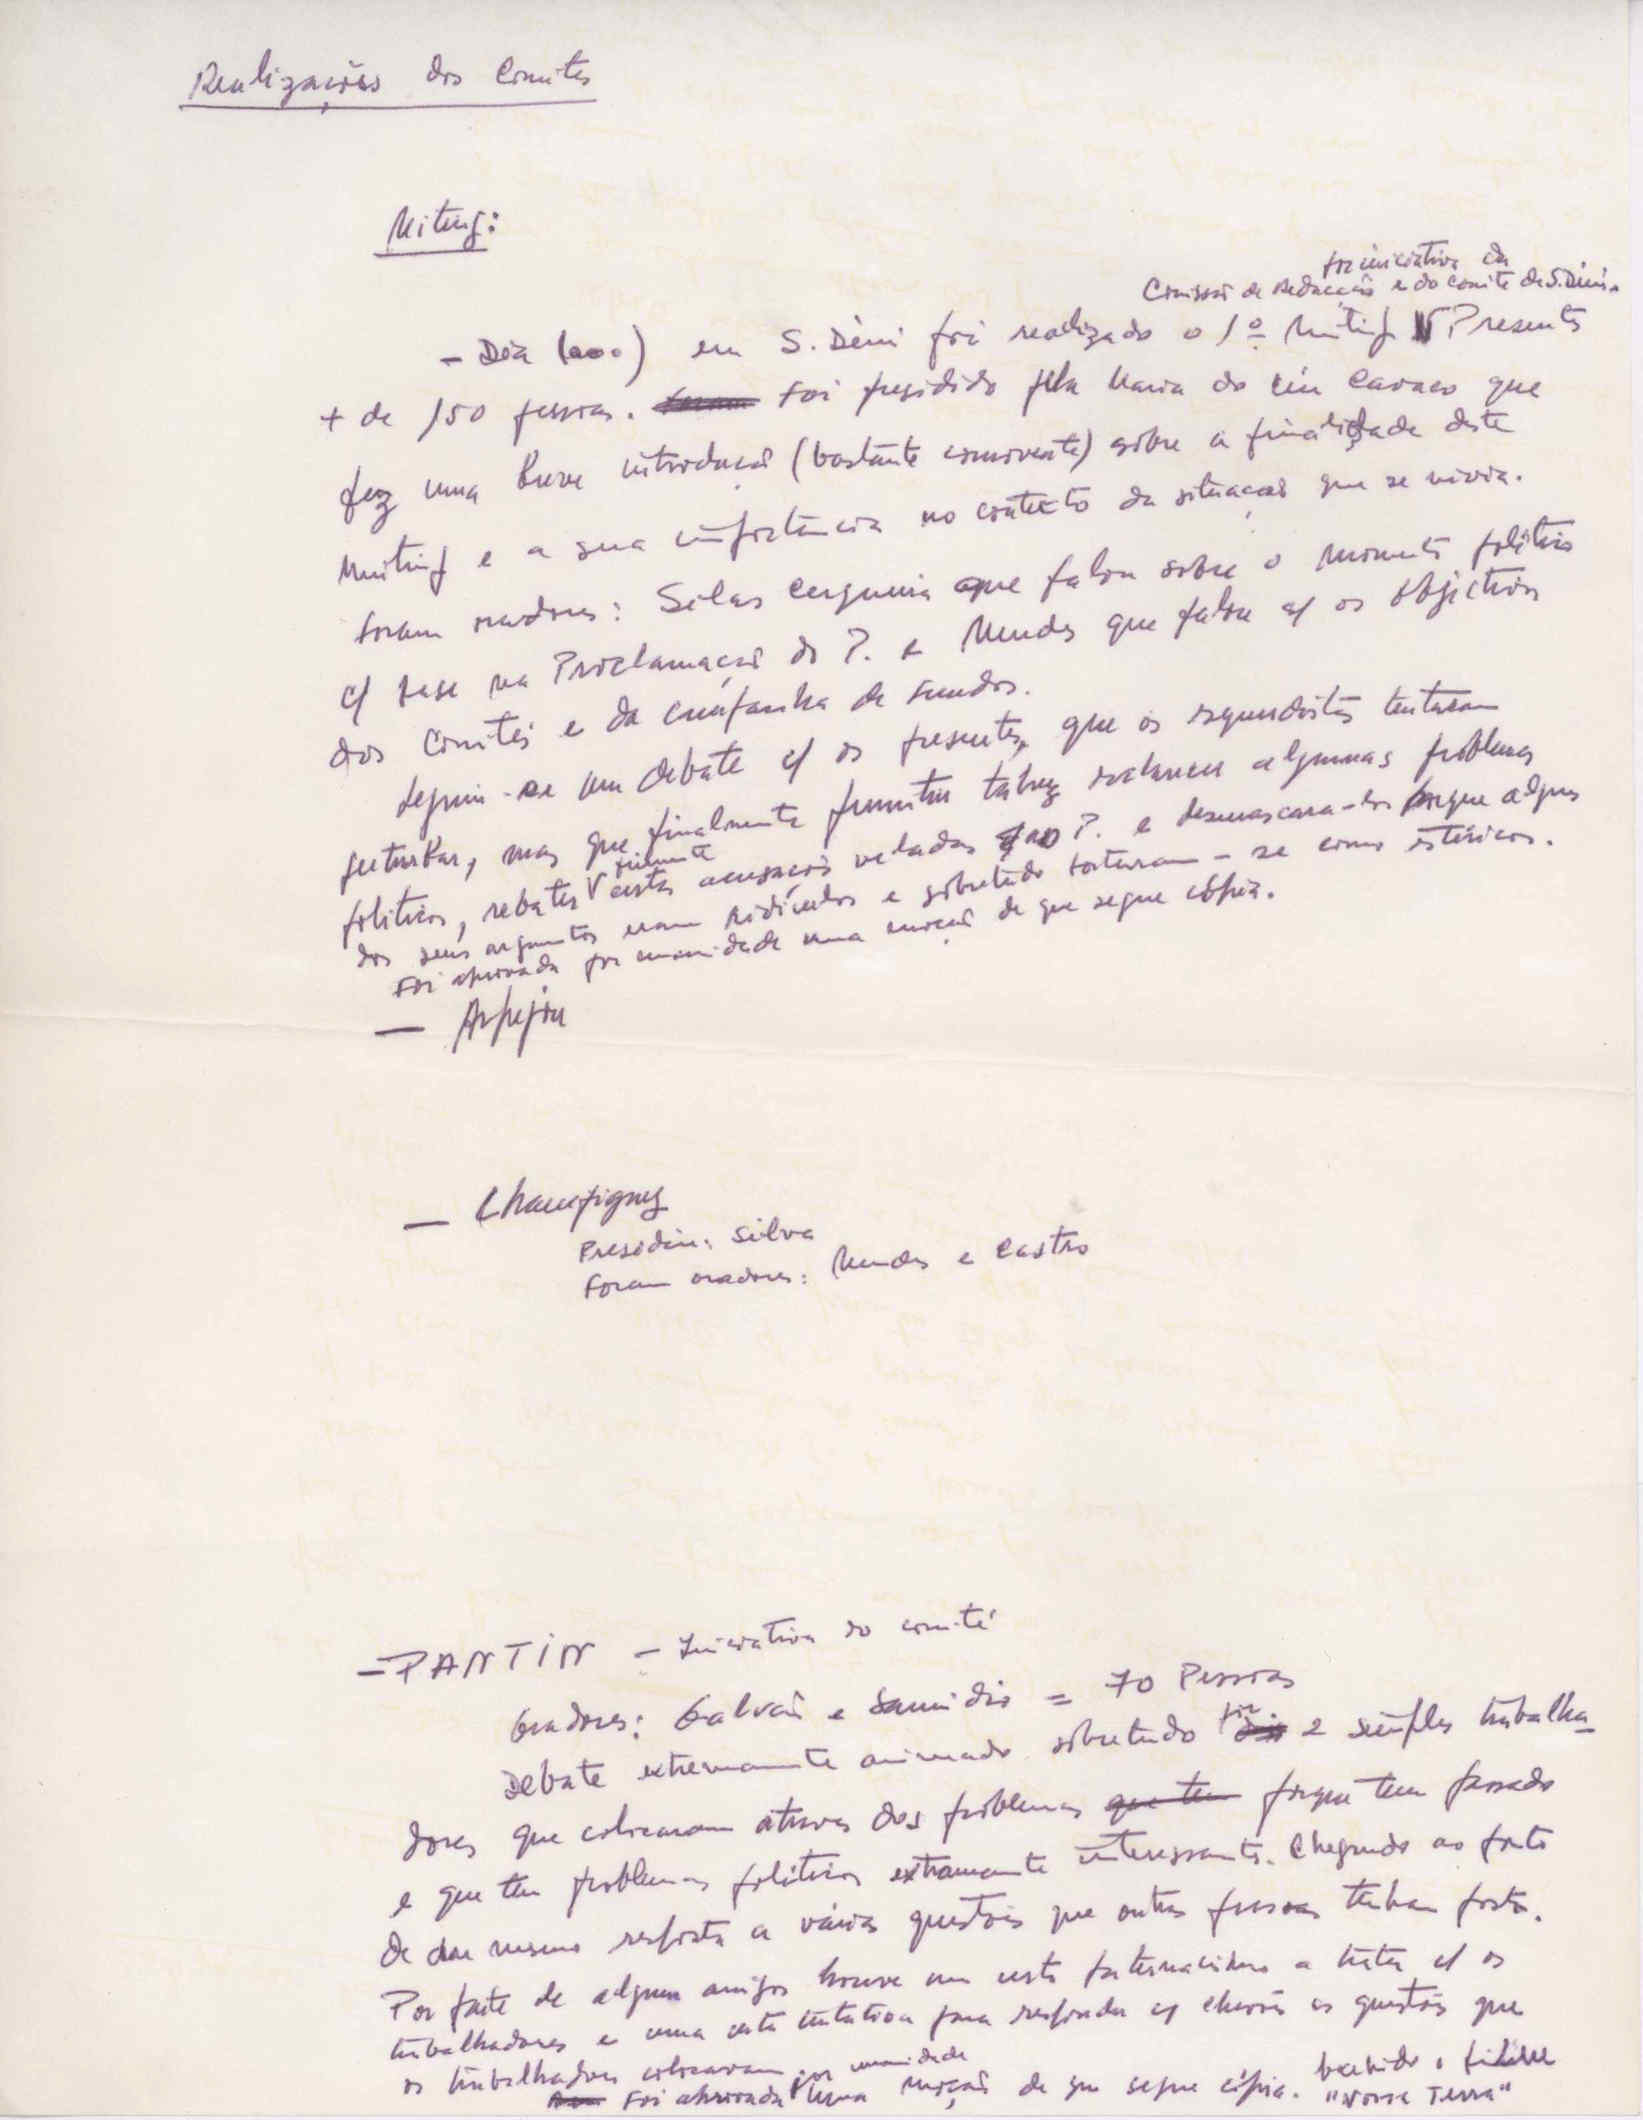 Realizações dos Comités
Miting:
por iniciativa da
Comissão de Redacção e do comité de S. Déni.
- Dia (...) em S. Déni foi realizado o 1º Miting Presents
+ de 150 pessoas. Foi presidido pela Maria do Céu que
fez uma breve introdução (bastante comovente) sobre a finalidade deste
Miting e a sua importância no contexto da situação que se vivia.
Foram oradores: Silas Cerqueira que falou sobre o momento político
c/ base na Proclamação do P. e Mendes que falou s/ os objectivos
dos Comités e da campanha de fundos.
Seguiu-se um debate c/ os presentes, que os esquerdistas tentaram
perturbar, mas que finalmente permitiu talvez esclarecer algumas problemas
políticos, rebater certas acusações veladas ao P. e desmascara-los porque alguns
dos seus argumentos eram ridículos e sobretudo tornaram-se como istéricos.
Foi aprovada por unanimidade uma moção de que segue cópia.
— Arpajon
— Champigny
Presidiu: Silva
Foram oradores: Mendes e Castro
- PANTIN - Iniciativa do comité
Oradores: Galvão e = 70 Pessoas
Debate extremamente animado sobretudo por 2 simples trabalha-
dores que colocaram através dos problemas porque tem passado
e que tem problemas políticos extramamente interessants. Chegando ao ponto
de dar mesmo resposta a várias questões que outras pessoas tinham posto.
Por parte de alguns amigos houve um certo paternalismo a tratar c/ os
trabalhadores e uma certa tentativa para responder c/ chavões as questões que
os trabalhadores colocaram
por unanimidade
Foi aprovada uma moção de que segue cópia. o filme
"Nossa Terra"